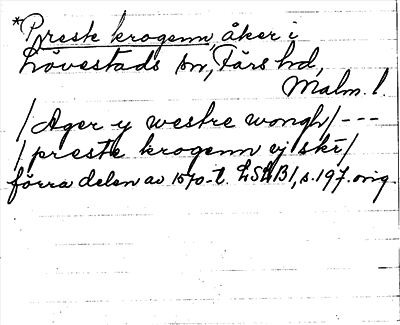 *Preste krogenn, åker i
Lövestads sn, Färs hd,
Malm. l.
/Ager y westre wongh/ ---
/preste krogenn vj skr/
förra delen av 1570-t. LSLB1, s. 197. orig.